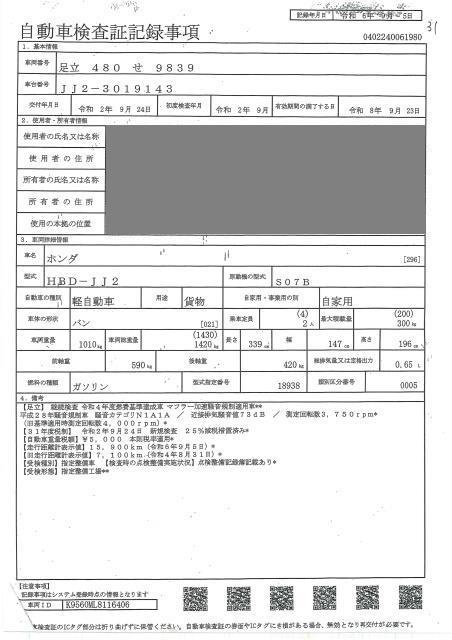 記録年月日 令和 6年 9月 5日
自動車検査証記録事項
0402240061980
31
1. 基本情報
車両番号 足立 480 せ 9839
車台番号 JJ2-3019143
交付年月日 令和 2年 9月 24日 初度検査年月 令和 2年 9月 有効期間の満了する日 令和 8年 9月 23日
2. 使用者・所有者情報
使用者の氏名又は名称
使用者の住所
所有者の氏名又は名称
所有者の住所
使用の本拠の位置
3. 車両詳細情報
車名 ホンダ [296]
型式 HBD-JJ2 原動機の型式 S07B
自動車の種別 軽自動車 用途 貨物 自家用・事業用の別 自家用
車体の形状 バン [021] 乗車定員 (4) 2人 最大積載量 (200) 300kg
車両重量 1010kg 車両総重量 (1430) 1420kg 長さ 339cm 幅 147cm 高さ 196cm
前軸重 590kg 後軸重 420kg 総排気量又は定格出力 0.65 L
燃料の種類 ガソリン 型式指定番号 18938 類別区分番号 0005
4. 備考
【足立】 継続検査 令和4年度燃費基準達成車 マフラー加速騒音規制適用車**
平成28年騒音規制車 騒音カテゴリN1A1A / 近接排気騒音値73dB / 測定回転数3,750rpm*
(旧基準適用時測定回転数4,000rpm)*
【31年度税制】 令和2年9月24日 新規検査 25%減税措置済み*
【自動車重量税額】¥5,000 本則税率適用*
【走行距離計表示値】15,900km(令和6年9月5日)*
【旧走行距離計表示値】7,100km(令和4年8月31日)*
【受検種別】指定整備車 【検査時の点検整備実施状況】点検整備記録簿記載あり*
【受検形態】指定整備工場**
【注意事項】
記録事項はシステム登録時点の情報となります
車両ID K9560ML8116406
車検査証のICタグ部分は折り曲げずに保管ください。自動車検査証の券面やICタグにき損がある場合、無効となり再交付が必要です。